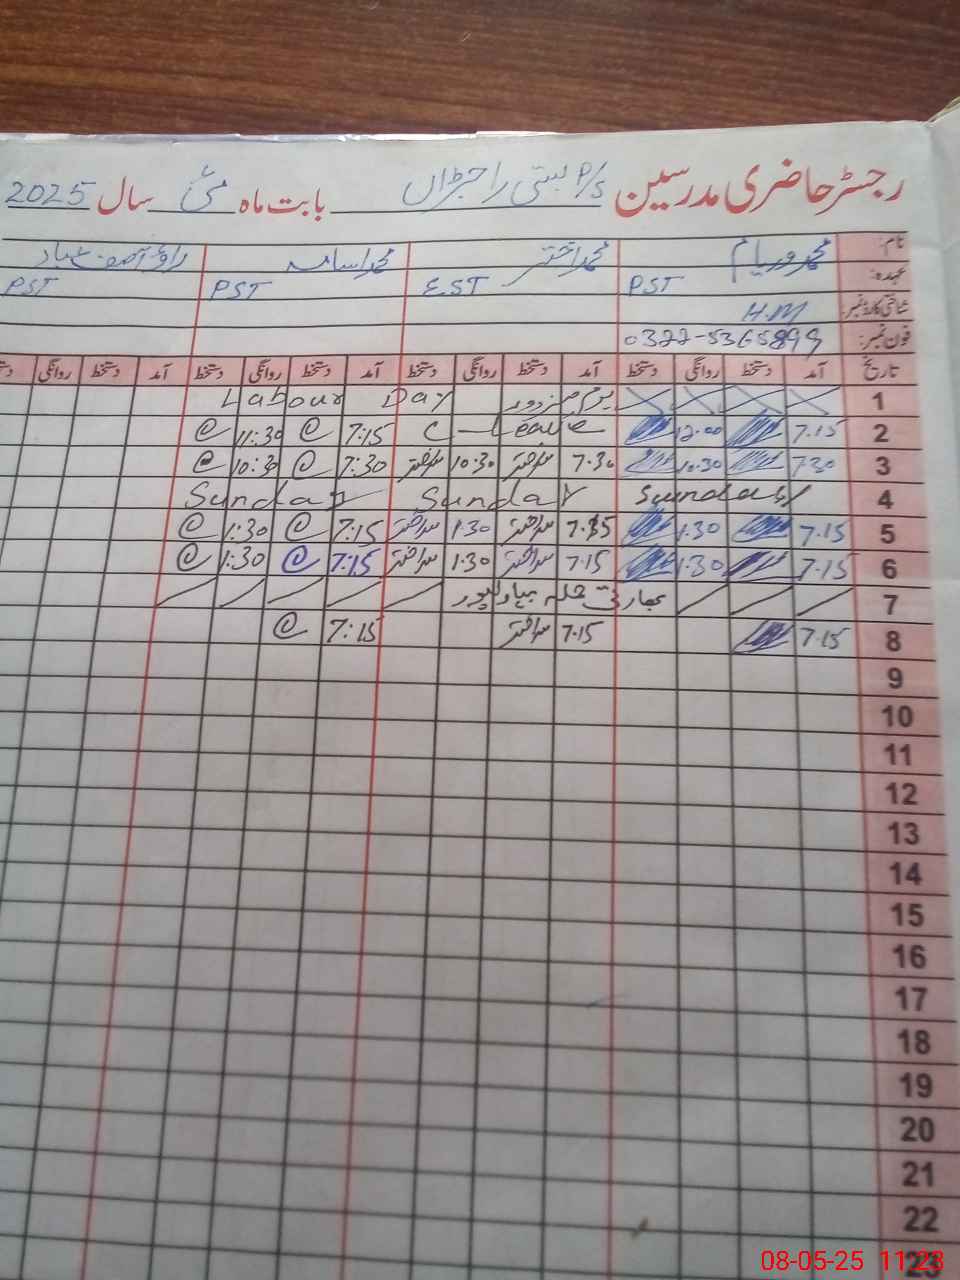 رجسٹر حاضری مدرسین P/S بستی راجڑاں بابت ماہ مئی سال 2025
نام: محمد وریام محمد اختر محمد اسامہ راؤ آصف
عہدہ: PST E.ST PST PST
شناختی کارڈ نمبر: H.M
فون نمبر: 0322-5365899
تاریخ آمد دستخط روانگی دستخط آمد دستخط روانگی دستخط آمد دستخط روانگی دستخط آمد دستخط روانگی دستخط
1 یوم مزدور Labour Day
2 7.15 12.00 C-Leave 7:15 11:30
3 7.30 10.30 7.30 10.30 7:30 10:30
4 Sunday Sunday Sunday
5 7.15 1.30 7.15 1.30 7:15 1:30
6 7.15 1.30 7.15 1.30 7:15 1:30
7 بھارتی حملہ بہاولپور
8 7.15 7.15 7:15
9
10
11
12
13
14
15
16
17
18
19
20
21
22
23
08-05-25 11:23